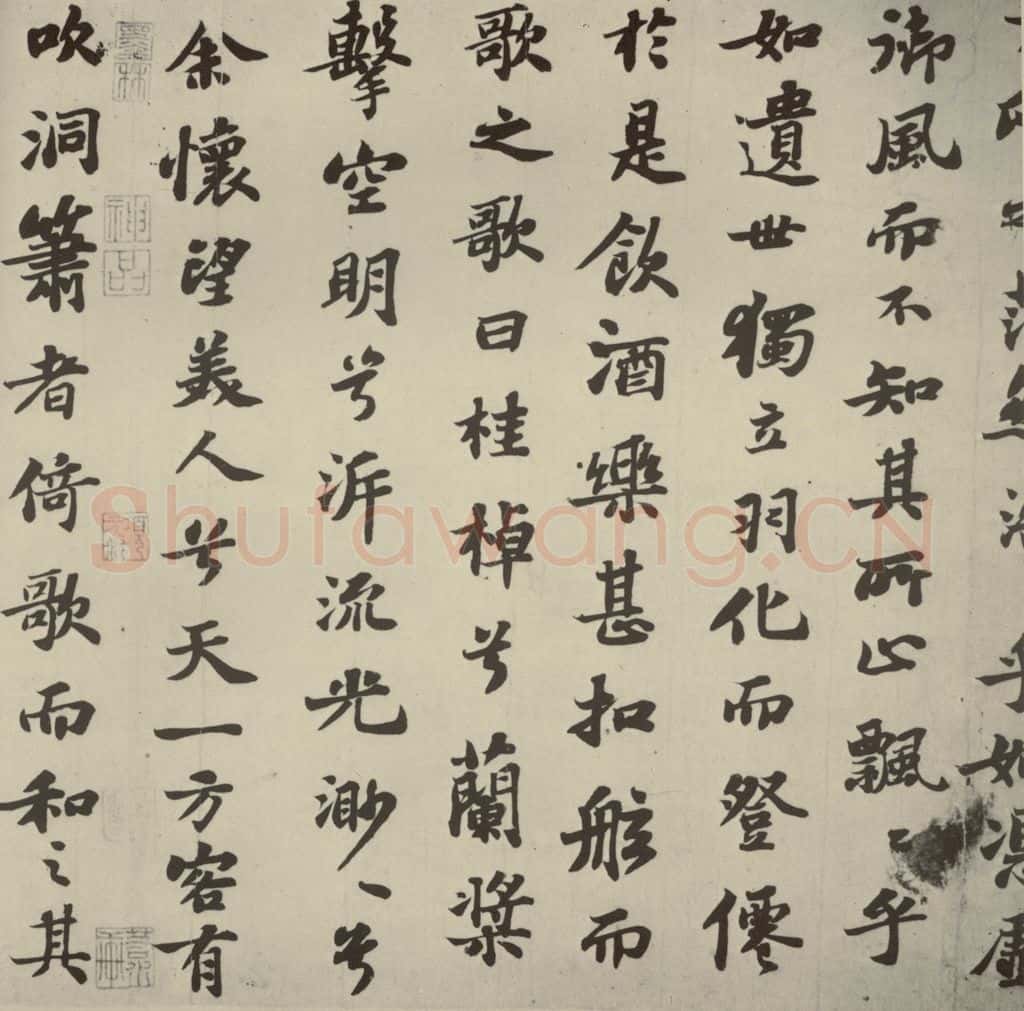 茫然浩乎如憑虛
御風而不知其所止飄〻乎
如遺世獨立羽化而登僊
於是飲酒樂甚扣舷而
歌之歌曰桂棹兮蘭槳
擊空明兮泝流光渺〻兮
余懷望美人兮天一方客有
吹洞簫者倚歌而和之其
墨林
神品
Shufawang.CN